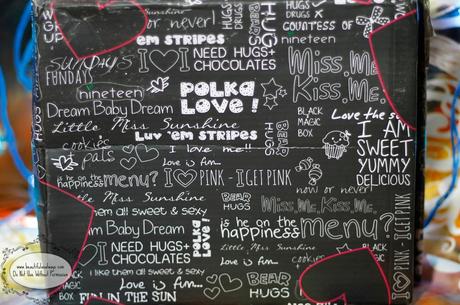 or never!
HUGS
DRUGS X
COUNTESS OF
nineteen
BEAR
HUG
'em STRIPES
SUNDAYS
FUNDAYS
I NEED HUGS+
CHOCOLATES
Miss Me,
Kiss Me,
nineteen
POLKA
LOVE!
Dream Baby Dream
BLACK
MAGIC
BOX
Love the su
Little Miss Sunshine
Luv 'em STRIPES
BEAR
HUGS
I AM
SWEET
YUMMY
DELICIOUS
cookies
pals
I love me!!
Love is fun...
is he on the
happiness menu?
I PINK - I GET PINK
now or never
Little Miss Sunshine
BEAR
HUGS
Miss Me, Kiss Me,
them all sweet & sexy
POLKA
LOVE!
is he on the
happiness menu?
I PINK - I GET PINK
Baby Dream
I NEED HUGS+
CHOCOLATES
Little Miss Sunshine
cookies
Love is fun...
I like them all sweet & sexy
BLACK
MAGIC
BOX
FUN IN THE SUN
BEAR
HUGS
www.beautifulasalways.com
Do Not Use Without Permission